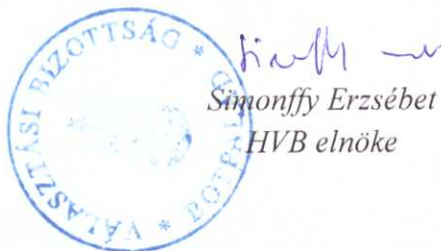 VÁLASZTÁSI BIZOTTSÁG * BOTPALÁD *
Simonffy Erzsébet
HVB elnöke